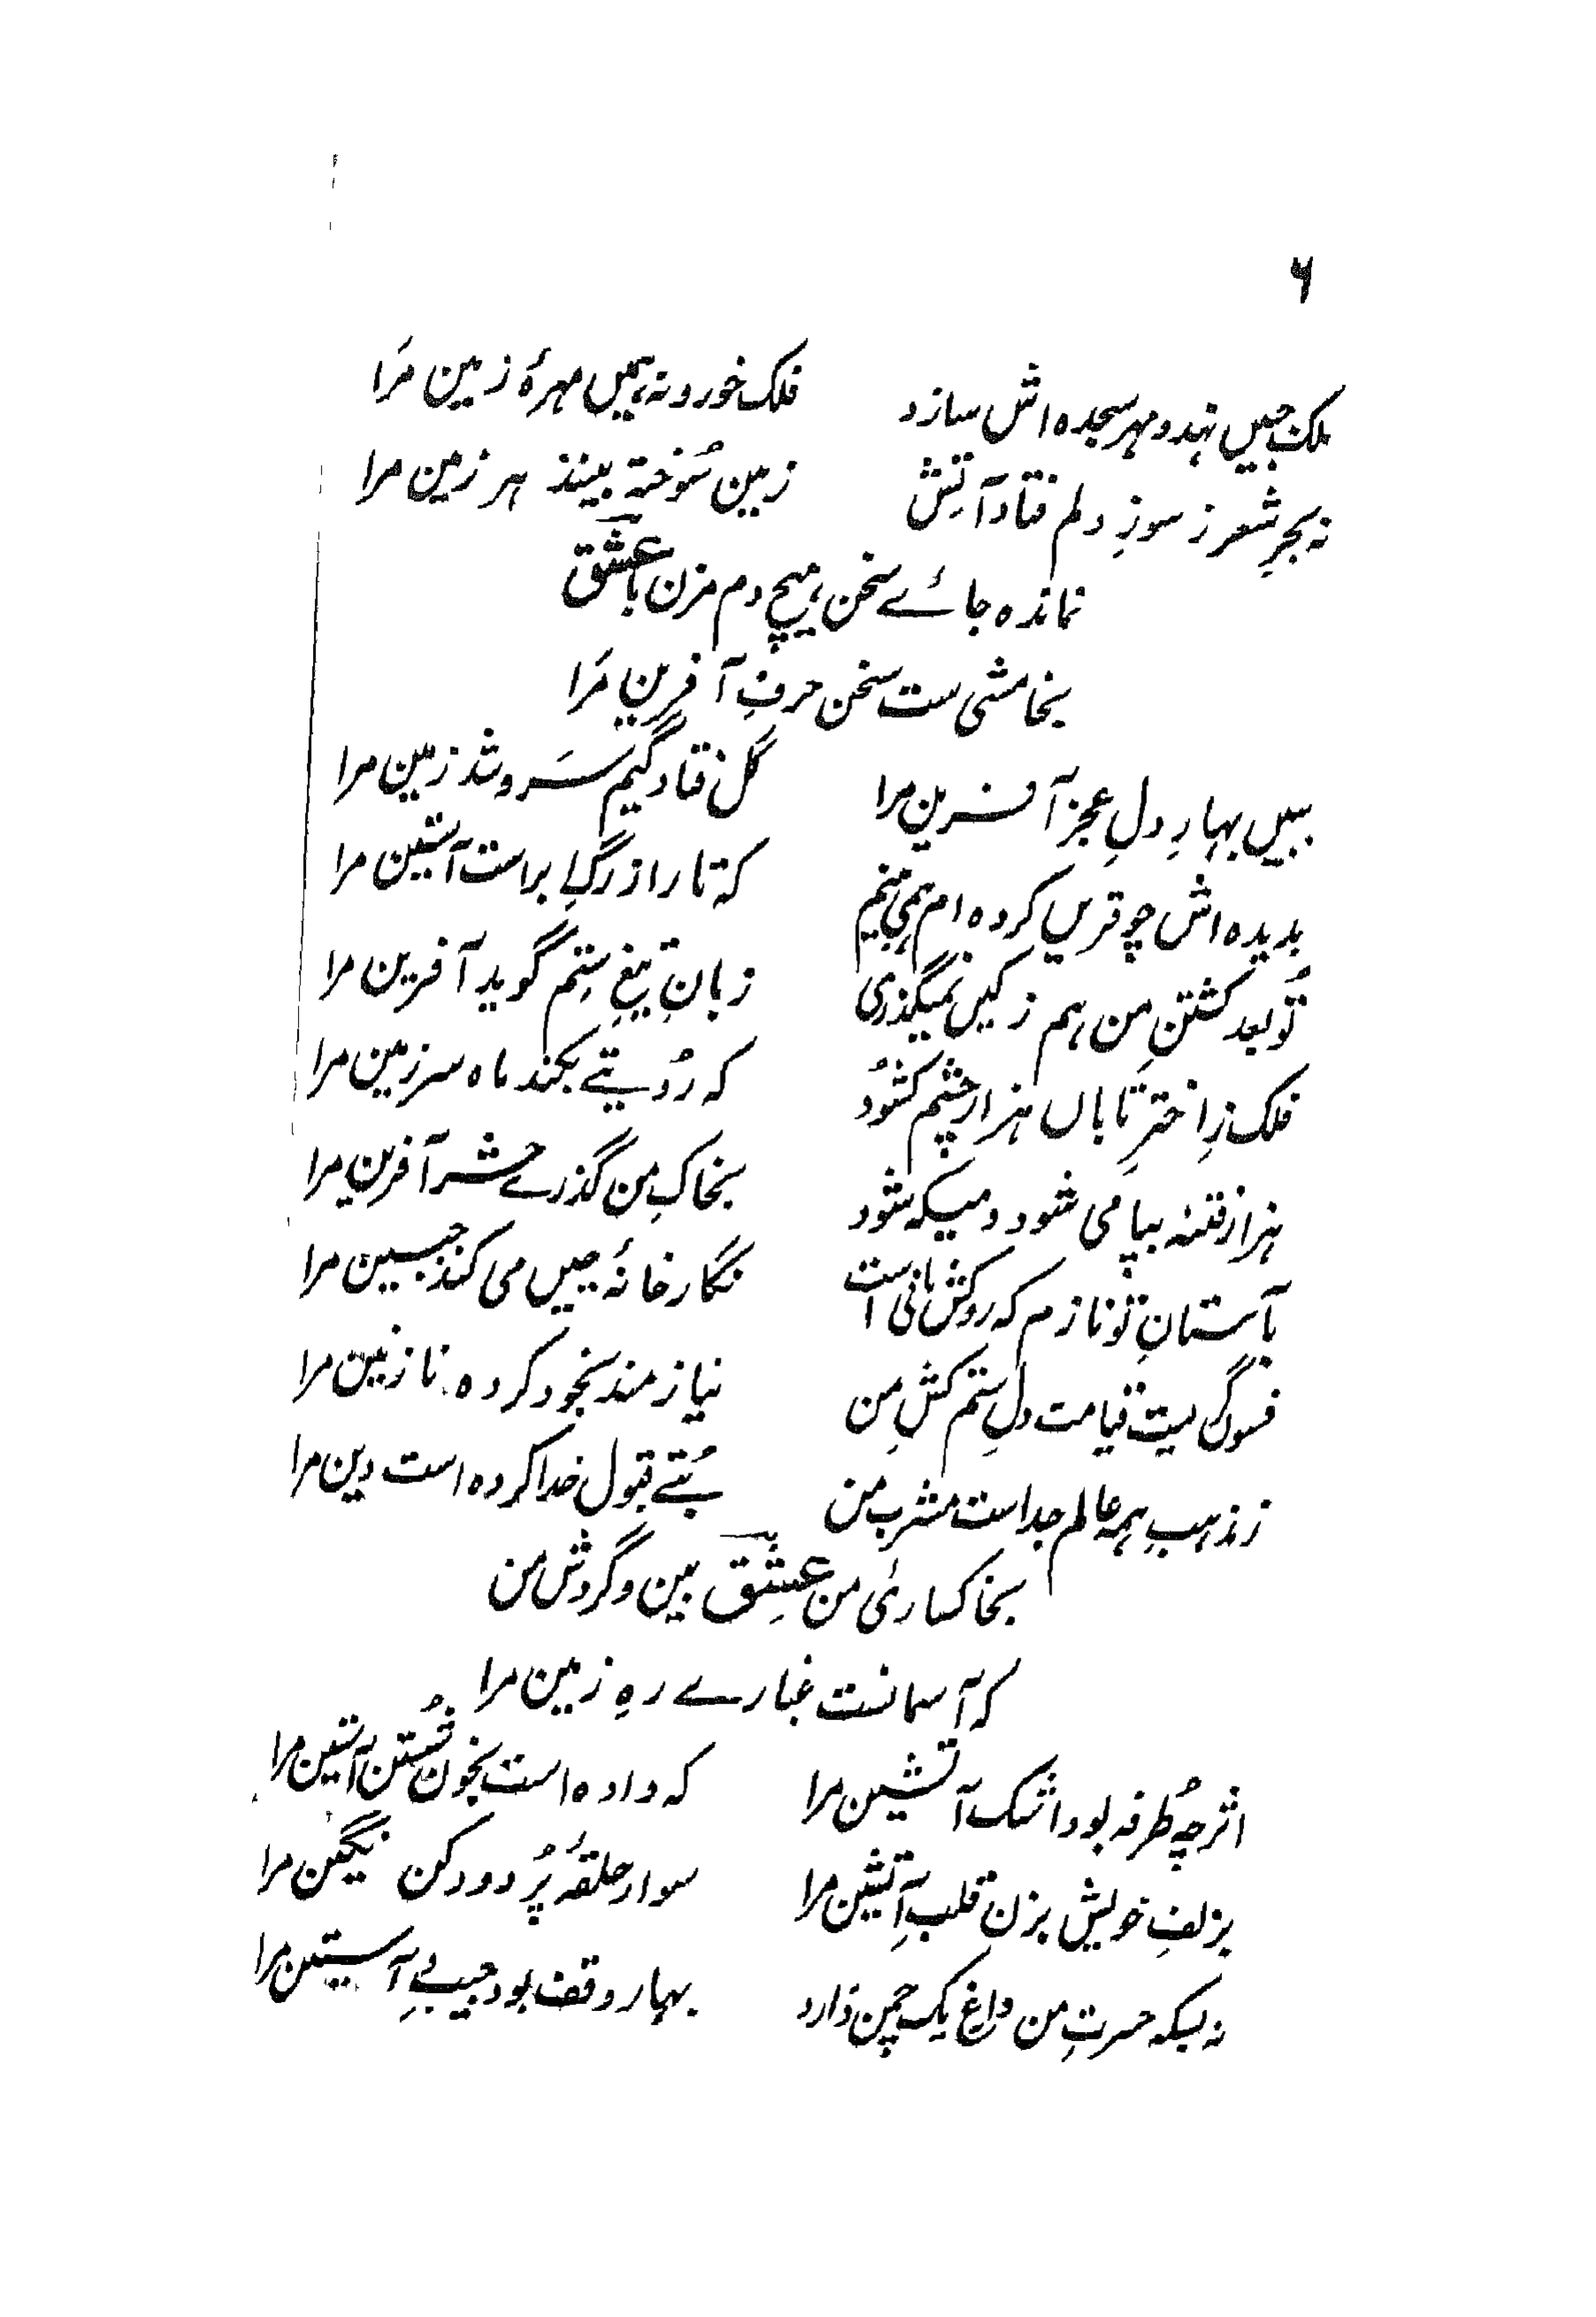 ۶
ملک جبیں نہد و مہر سجدہ اش سازد
فلک خورد نہ ہمیں مہرۂ زمین مرا
نہ بحرِ شعر ز سوزِ دلم فتاد آتِش
زمین سُوختہ بینند ہر زمین مرا
نماندہ جائے سخن ہیچ دم مزن با عشق
بخامشی ست سخن حرفِ آفرین مرا
ببیں بہارِ دلِ عجز آفرین مرا
گل فتادگیم سَر و شد زمین مرا
بدیدہ اش چو قریں کردہ ام ہمی بینم
کہ تار از رگِ ابر است آستین مرا
تُو بعد کشتنِ من ہم ز کیں نمیگذری
زبانِ تیغِ سِتم گوید آفرین مرا
فلک زِ اخترِ تاباں ہزار چشم کشُود
کہ رُویتے بکند ماہ سر زمین مرا
ہزار فتنہ بپا می شود دمیکہ شود
بخاکِ من گذرے حشر آفرین مرا
بآستانِ تو نازم کہ روکش مانی است
نگارخانۂ چیں می کند جبین مرا
فسردگی ست قیامت دلِ ستم کشِ من
نیازمند بخود کردہ نازنین مرا
ز مذہبِ ہمہ عالم جداست مشرب من
بُتے قبول خدا کردہ است دین مرا
بخاکساریٔ من عِشق بین و گردش من
کہ آسمانست غبارے رہِ زمین مرا
اثر چہ طُرفہ بود اشک آتشین مرا
کہ دادہ است بخون شُستن آستین مرا
بزلفِ خویش بزن قلبِ آتشین مرا
سوار حلقۂ پُر دود کن نگین مرا
ز بسکہ حسرتِ من داغِ یک چمن دارد
بہار وقف بود جیب و آستین مرا